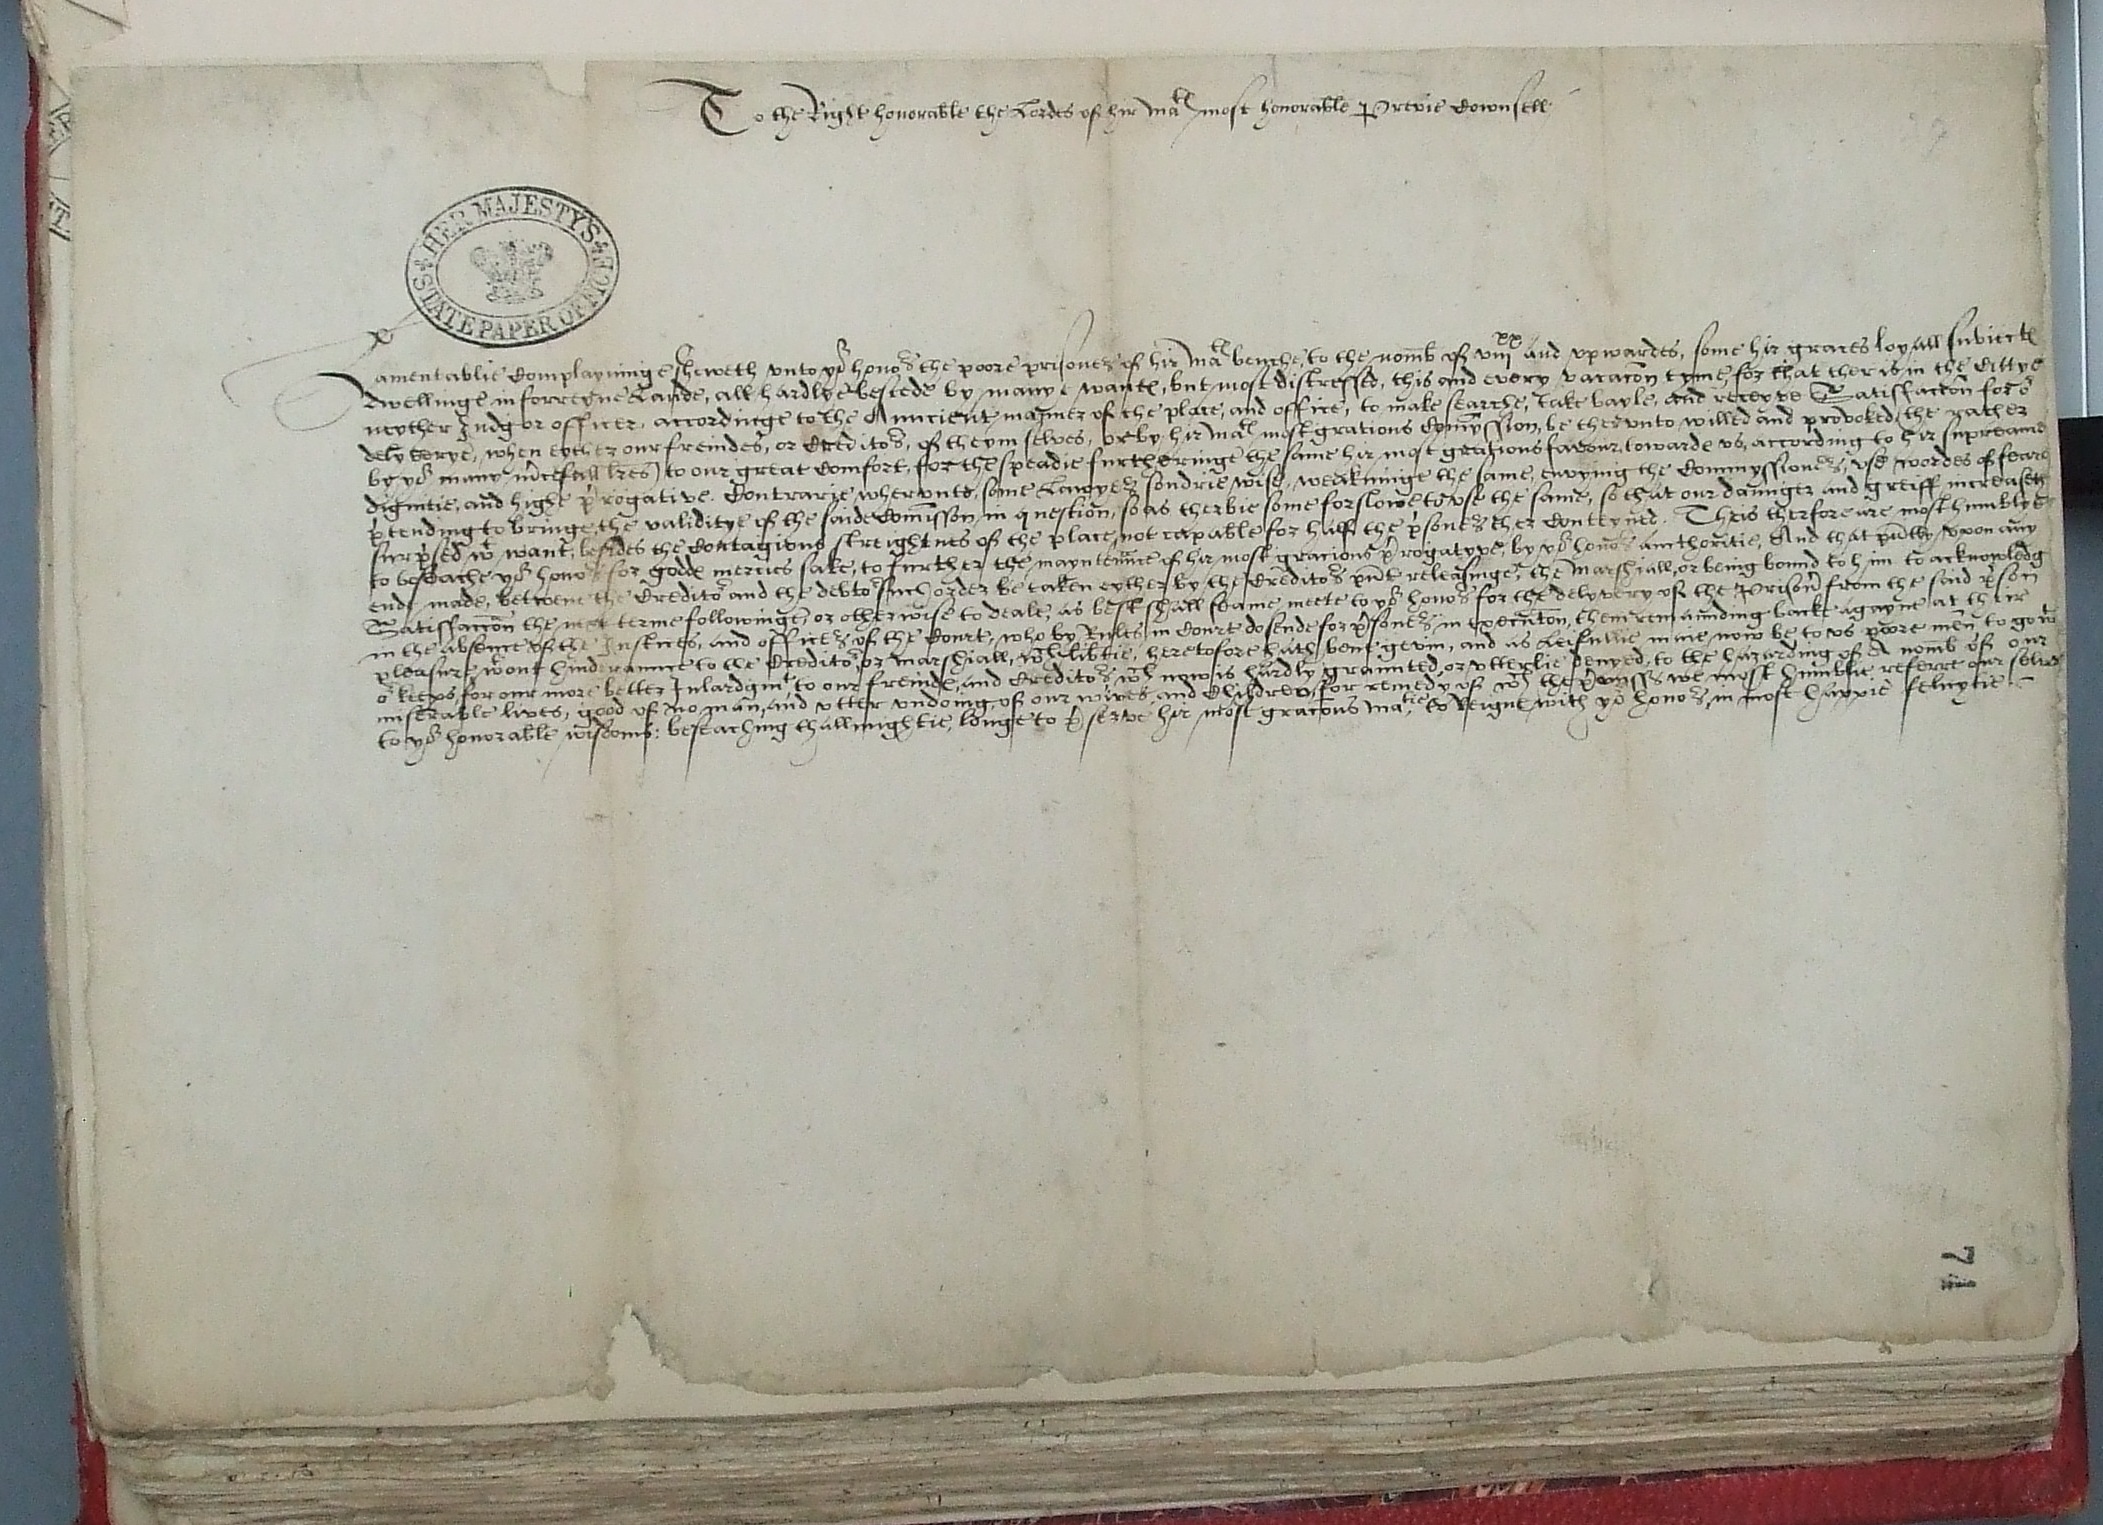 To the Right honorable the Lordes of hir Matꝭ most honorable Previe Counsell
HER MAJESTY'S STATE PAPER OFFICE
Lamentablie Complayninge sheweth unto yor honors the poore prisoners of hir Matꝭ benche, to the nomb of viijxx and upwardes, some hir graces loyall subiectꝭ
dwellinge in forreyne Lande, all hardlye bestede by manye wantꝭ, but most distressed, this and every vacacon tyme, for that ther is in the Cittye
neyther Judg or officer, accordinge to the Auncient manner of the place, and office, to make searche, take bayle, and receyve Satisfaccon for or
delyverye, when eyther our freindes, or Creditors, of theym selves, or by hir Matꝭ most gratious Comyssion, be therunto willed and provoked (the rather
by yor many mcifull lres) to our great Comfort, for the speadie furtheringe the same hir most gratious favour towarde us, according to hir supreame
dignitie, and highe progative. Contrarie wherunto, some Lawyers sondrie wise, weakninge the same, envying the Commyssioners, use wordes of feare
ptending to bringe the validitye of the saide Comisson in question, so as therbie some forslowe to use the same, so that our daunger and greiff increaseth
surprsed wt want, besides the Contagious streightnes of the place, not capable for half the psoners ther Conteyned. Theis therfore are most humblye
to beseache yor honors for godꝭ mercies sake, to further the mayntenance of hir most gracious progatyve, by yor honors aucthoritie, And that pntly upon any
ende made, betwene the Creditor and the debtor such order be taken eyther by the Creditors pnt releasinge, the Marshiall, or being bound to him to acknowledg
Satisfaccon the next terme followinge, or otherwise to deale, as best shall seame meete to yor honors for the delyvery of the Prisonr from the said prson
in the absence of the Justices, and officers of the Court, who by Rules in Court do sende for prsoners in execution, them remaunding backe agayne at their
pleasure wtout hinderaunce to the Creditor or marshiall, wch libtie, heretofore hath bene geven, and as leifullie maie now be to us poore men to go wt
or kepꝭ, for our more better Inlardgmt, to our freindꝭ, and Creditors wch now is hardly graunted, or utterlie denyed, to the hazarding of A nomb of our
miserable lives, good of no man, and utter undoing of our wives, and Children, for remedy of wch the prmysses we most humblie referre our selves
to yor honorable wisdoms: beseaching thallmightie, longe to prserve hir most gracious Matie to Reigne with yor honors in most happie felicytie
71